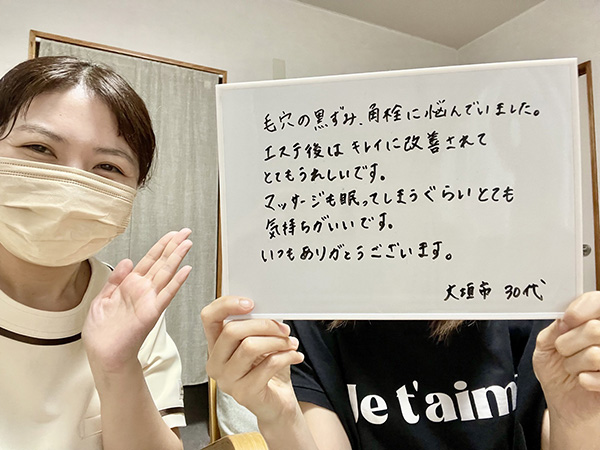 毛穴の黒ずみ、角栓に悩んでいました。
エステ後はキレイに改善されて
とてもうれしいです。
マッサージも眠ってしまうぐらいとても
気持ちがいいです。
いつもありがとうございます。
大垣市 30代
Je t'aim